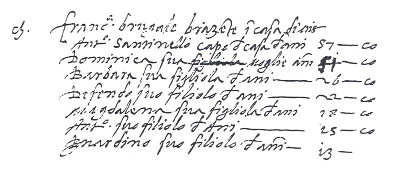 ch. franc.º briazete i casa di
Ant.º Santinello capo d casa d ani 57 — co
Dominica sua figliola moglie ani 54 — co
Barbara sua figliola d ani — 26 — co
Defendo suo filiolo d ani — 22 — co
Magdalena sua figliola d ani 18 — co
Ant.º suo filiolo d Ani — 15 — co
Bnardino suo filiolo d ani — 13 —